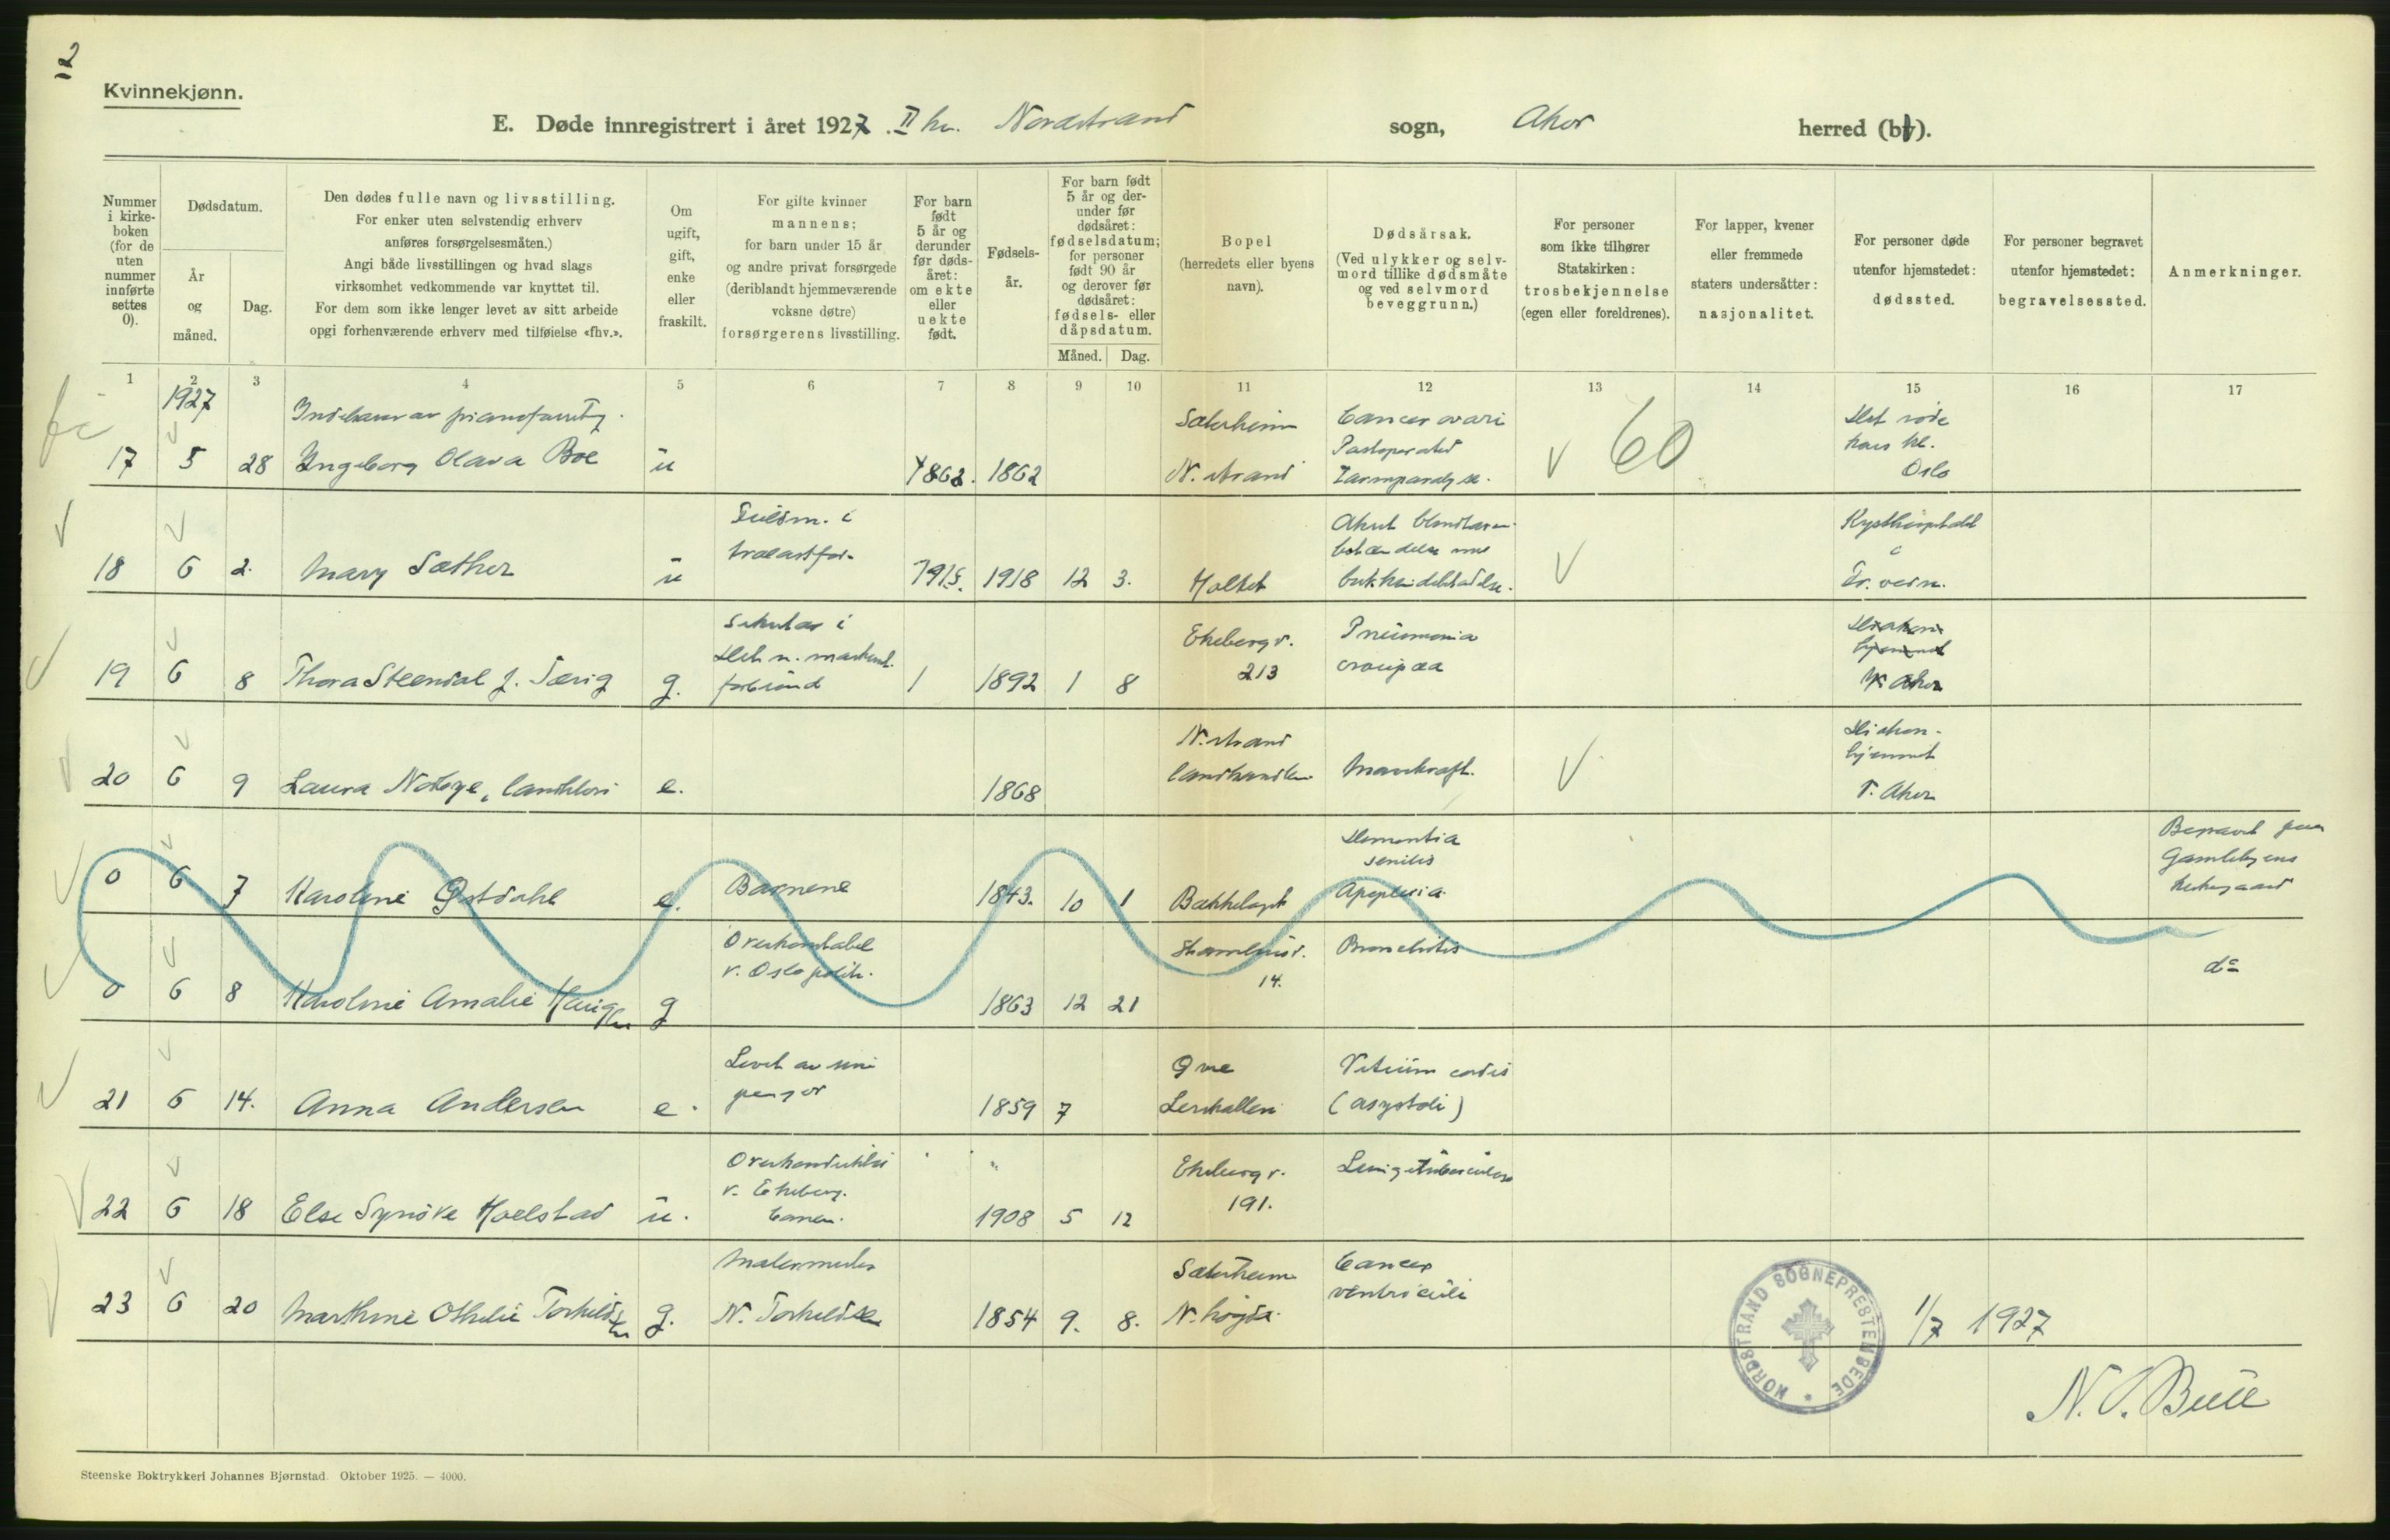 2
Kvinnekjønn.
E. Døde innregistrert i året 1927. II kv. Nordstrand sogn, Aker herred (by).
Nummer
i kirke-
boken
(for de
uten
nummer
innførte
settes
0).
Dødsdatum.
År
og
måned.
Dag.
Den dødes fulle navn og livsstilling.
For enker uten selvstendig erhverv
anføres forsørgelsesmåten.)
Angi både livsstillingen og hvad slags
virksomhet vedkommende var knyttet til.
For dem som ikke lenger levet av sitt arbeide
opgi forhenværende erhverv med tilføielse «fhv.».
Om
ugift,
gift,
enke
eller
fraskilt.
For gifte kvinner
mannens;
for barn under 15 år
og andre privat forsørgede
(deriblandt hjemmeværende
voksne døtre)
forsørgerens livsstilling.
For barn
født
5 år og
derunder
før døds-
året:
om ekte
eller
uekte
født.
Fødsels-
år.
For barn født
5 år og der-
under før
dødsåret:
fødselsdatum;
for personer
født 90 år
og derover før
dødsåret:
fødsels- eller
dåpsdatum.
Måned. Dag.
Bopel
(herredets eller byens
navn).
Dødsårsak.
(Ved ulykker og selv-
mord tillike dødsmåte
og ved selvmord
beveggrunn.)
For personer
som ikke tilhører
Statskirken:
trosbekjennelse
(egen eller foreldrenes).
For lapper, kvener
eller fremmede
staters undersåtter:
nasjonalitet.
For personer døde
utenfor hjemstedet:
dødssted.
For personer begravet
utenfor hjemstedet:
begravelsessted.
Anmerkninger.
1 2 3 4 5 6 7 8 9 10 11 12 13 14 15 16 17
1927
Sæterheim Cancer ovarii Det røde
Postoperativ kors kl.
17 5 28 Ingeborg Olava Boe u 1862. 1862 N. strand Tarmparalyse. 60 Oslo
trælastfor-
18 6 2. Mary Sæther u 1918 12 3. Holtet
Sekretær i Ekebergv. Pneumonia
213 croupøa
forbund
19 6 8 Thora Steendal f. Særig g. 1 1892 1 8 Aker
N. strand Diakon-
hjemmet
20 6 9 Laura Notbye, e. 1868 Marikraft. V. Aker
Dementia Begravet paa
senilis Gamlebyens
0 6 7 Karoline Østdahl e. Barnene 1843. 10 1 Bækkelaget Apoplexia. kirkegaard
Overkonstabel Bronchitis
v. Oslo politi. 14. do
0 6 8 Karoline Amalie Haugen g 1863 12 21
Levet av sine Øvre Vitium cordis
penger
21 6 14. Anna Andersen e. 1859 7 Lerskallen (asystoli)
Overkonduktør Ekebergv. Lungetuberculose
v. Ekeberg- 191.
banen.
22 6 18 Else Synøve Hoelstad u. 1908 5 12
Malermester Sæterheim Cancer
ventriculi
23 6 20 Marthine Othelie Torkildsen g. N. Torkildsen 1854 9. 8.
NORDSTRAND SOGNEPRESTEMBEDE
1/7 1927
Steenske Boktrykkeri Johannes Bjørnstad. Oktober 1925. — 4000.